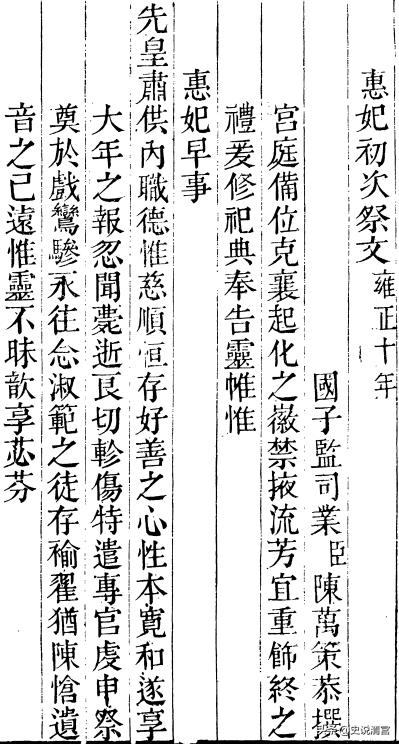 惠妃初次祭文雍正十年
國子監司業臣陳萬策恭撰
宮庭備位克襄起化之徽禁掖流芳宜重飾終之
禮爰修祀典奉告靈帷惟
惠妃早事
先皇肅供內職德惟慈順恒存好善之心性本寬和遂享
大年之報忽聞薨逝良切軫傷特遣專官虔申祭
奠於戲鸞驂永往念淑範之徒存褕翟猶陳愴遺
音之已遠惟靈不昧歆享苾芬
头条@史说清宫